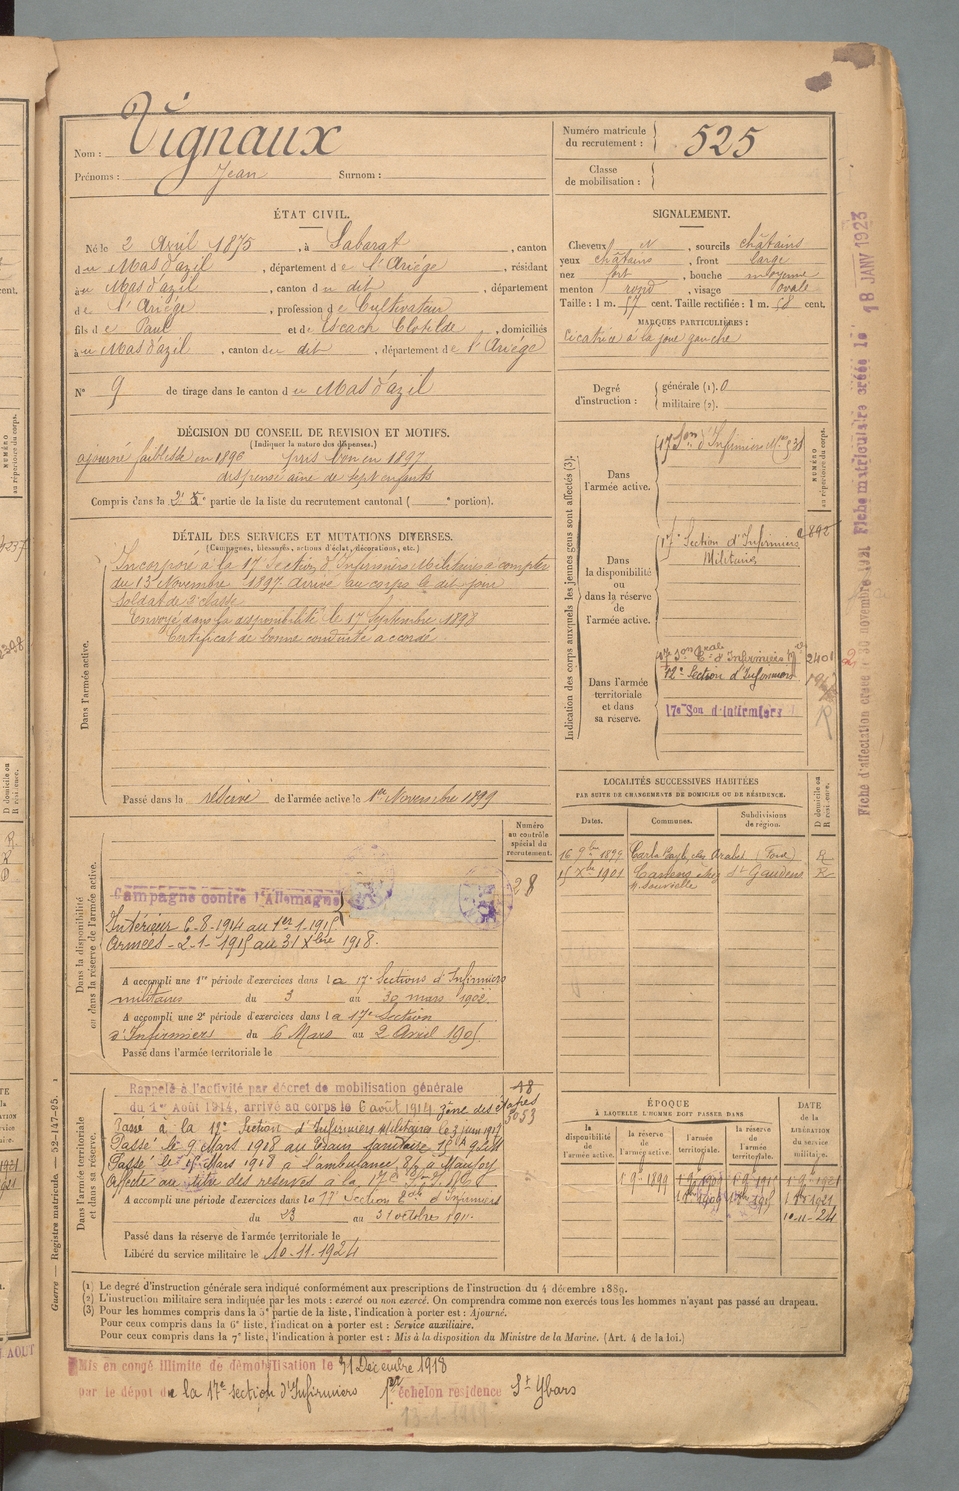 Nom : Vignaux
Prénoms : Jean Surnom :
Numéro matricule du recrutement : 525
Classe de mobilisation :
ÉTAT CIVIL.
Né le 2 Avril 1875, à Sabarat, canton
du Mas d'azil, département de l'Ariége, résidant
au Mas d'azil, canton du dit, département
de l'Ariége, profession de Cultivateur
fils de Paul et de Escach Clotilde, domiciliés
au Mas d'azil, canton du dit, département de l'Ariége
N° 9 de tirage dans le canton du Mas d'azil
SIGNALEMENT.
Cheveux N, sourcils châtains
yeux châtains, front large
nez fort, bouche moyenne
menton rond, visage ovale
Taille : 1 m. 57 cent. Taille rectifiée : 1 m. 58 cent.
MARQUES PARTICULIÈRES :
Cicatrice à la joue gauche
Degré d'instruction : générale (1). 0
militaire (2).
DÉCISION DU CONSEIL DE REVISION ET MOTIFS.
(Indiquer la nature des dispenses.)
ajourné faiblesse en 1896 pris bon en 1897
dispensé ainé de sept enfants
Compris dans la 2e partie de la liste du recrutement cantonal ( e portion).
DÉTAIL DES SERVICES ET MUTATIONS DIVERSES.
(Campagnes, blessures, actions d'éclat, décorations, etc.)
Dans l'armée active.
Incorporé à la 17 Section d'Infirmiers Militaires à compter
du 13 Novembre 1897. arrivé au corps le dit jour
Soldat de 2e classe
Envoyé dans la disponibilité le 17 Septembre 1898
Certificat de bonne conduite accordé.
Passé dans la réserve de l'armée active le 1er Novembre 1899
Indication des corps auxquels les jeunes gens sont affectés (3).
NUMÉRO au répertoire du corps.
Dans l'armée active.
17 Son d'Infirmiers Mres 831
Dans la disponibilité ou dans la réserve de l'armée active.
17e Section d'Infirmiers
Militaires
Dans l'armée territoriale et dans sa réserve.
2401
12e Section d'Infirmiers
17e Son d'infirmiers
R
LOCALITÉS SUCCESSIVES HABITÉES
PAR SUITE DE CHANGEMENTS DE DOMICILE OU DE RÉSIDENCE.
Dates. Communes. Subdivisions de région. D domicile ou R résidence.
16 9bre 1899 Carla Bayle, chez (Foix) R
15 Xbre 1901 St Gaudens R
Numéro au contrôle spécial du recrutement.
28
Dans la disponibilité ou dans la réserve de l'armée active.
Campagne contre l'Allemagne
Intérieur 6-8-1914 au 1er-1-1915
Armées - 2-1-1915 au 31 Xbre 1918.
A accompli une 1re période d'exercices dans la 17e Sections d'Infirmiers
militaires du 3 au 30 mars 1902.
A accompli une 2e période d'exercices dans la 17e Section
d'Infirmiers du 6 Mars au 2 Avril 1905
Passé dans l'armée territoriale le
Dans l'armée territoriale et dans sa réserve.
Rappelé à l'activité par décret de mobilisation générale
du 1er Août 1914, arrivé au corps le 6 août 1914 zône des Armées
Passé à la 12e Section d'Infirmiers Militaires le 3 juin 1917
Passé le 9 Mars 1918 au
Passé le Mars 1918 à l'ambulance
A accompli une période d'exercices dans la 17e Section d'Infirmiers
du 23 au 31 octobre 1911.
Passé dans la réserve de l'armée territoriale le
Libéré du service militaire le 10.11.1924
18
3053
ÉPOQUE
À LAQUELLE L'HOMME DOIT PASSER DANS
la disponibilité de l'armée active.
la réserve de l'armée active.
l'armée territoriale.
la réserve de l'armée territoriale.
DATE de la LIBÉRATION du service militaire.
10-11-24
(1) Le degré d'instruction générale sera indiqué conformément aux prescriptions de l'instruction du 4 décembre 1889.
(2) L'instruction militaire sera indiquée par les mots : exercé ou non exercé. On comprendra comme non exercés tous les hommes n'ayant pas passé au drapeau.
(3) Pour les hommes compris dans la 5e partie de la liste, l'indication à porter est : Ajourné.
Pour ceux compris dans la 6e liste, l'indication à porter est : Service auxiliaire.
Pour ceux compris dans la 7e liste, l'indication à porter est : Mis à la disposition du Ministre de la Marine. (Art. 4 de la loi.)
Mis en congé illimité de démobilisation le 31 Décembre 1918
par le dépôt de la 17e section d'Infirmiers 1er échelon résidence St Ybars
13-1-1919
Guerre — Registre matricule. 52-147-95.
Fiche d'affectation créée le 30 novembre 1921 Fiche matriculaire créée le 18 JANV 1923